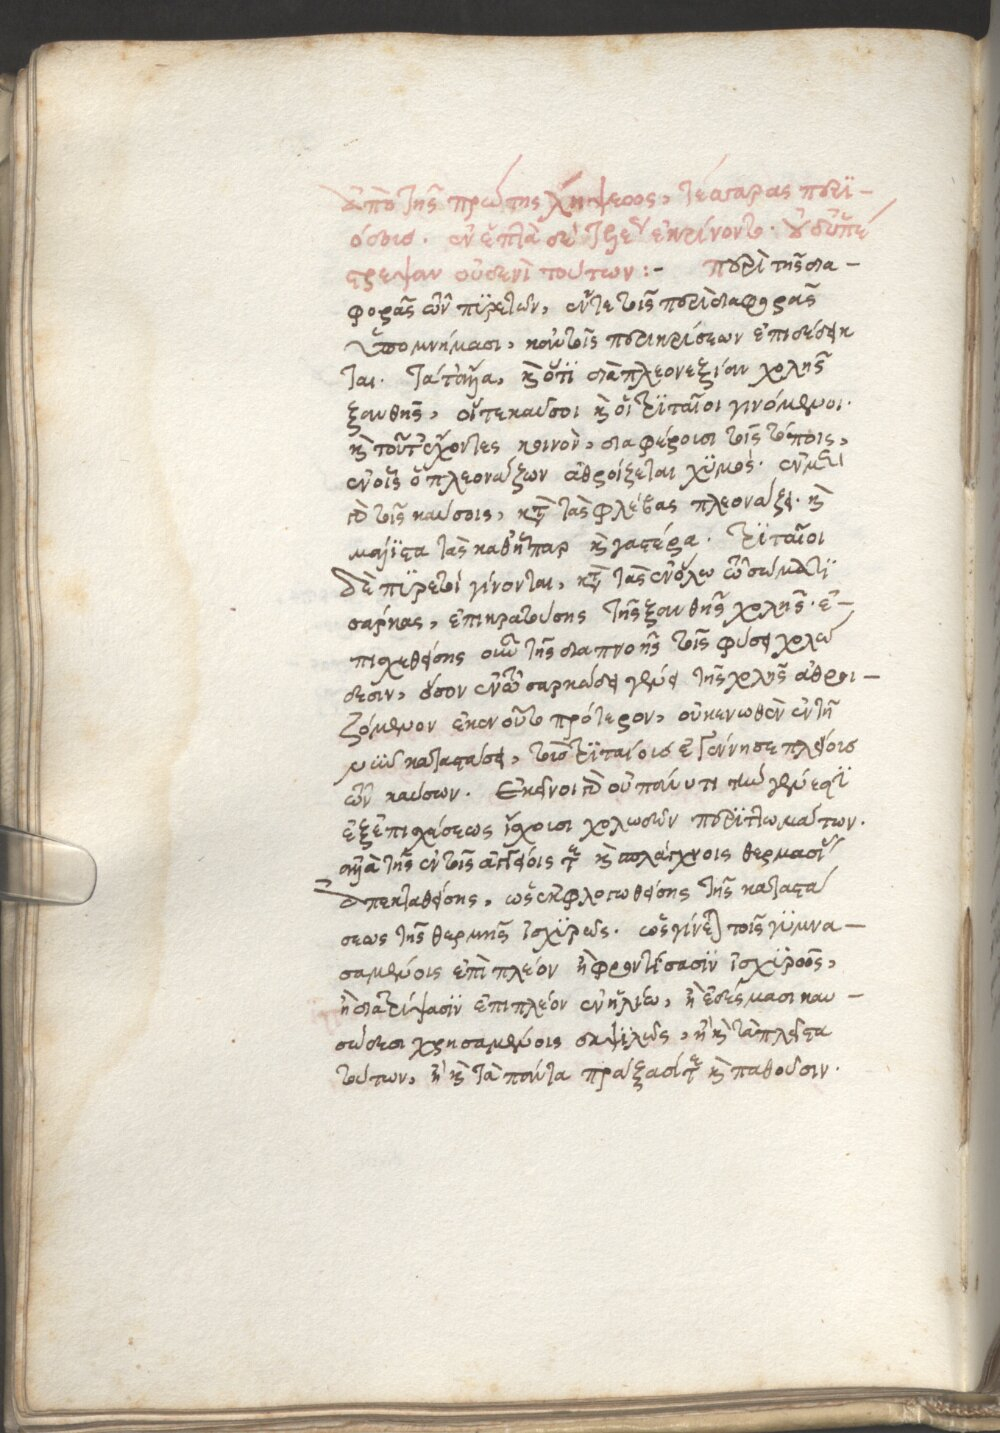 ἀπὸ τῆς πρώτης λήψεος, τέσσαρας περϊ-
όδοις. ἐν ἑπτὰ δὲ τὸ ἐκρίνοντο. οὐδ' ὑπέ
στρεψαν οὐδενὶ τούτων :- περὶ τῆς δια-
φορᾶς τῶν πϋρετῶν, ἔν τε τοῖς περὶ διαφορᾶς
ὑπομνήμασι, κἀν τοῖς περι κρίσεων ἐπιδέδεικ
ται. ταῦτα, καὶ ὅτι διὰ πλεονεξίαν χολῆς
ξανθῆς, οἵ τε καῦσοι καὶ οἱ τρϊταῖοι γινόμενοι.
καὶ τοῦτ' ἔχοντες κοινὸν, διαφέρουσι τοῖς τόποις,
ἐν οἷς ὁ πλεονάζων ἀθροίζεται χϋμός. ἐν μὲν
τοῖς καύσοις, κατὰ τὰς φλέβας πλεονάζει. καὶ
μάλϊστα τὰς καθ' ἧπαρ καὶ γαστέρα. τρϊταῖοι
δὲ πϋρετοὶ γίνονται, κατὰ τὰς ἐν ὅλω τῶ σώματϊ
σάρκας, ἐπικρατούσης τῆς ξανθῆς χολῆς. ἐ-
πισχεθείσης οὖν τῆς διαπνοῆς τοῖς φύσει χολώ
δεσιν, ὅσον ἐν τῶ σαρκώδει γένει τῆς χολῆς ἀθροι-
ζόμενον ἐκενοῦτο πρότερον, οὐ κενωθὲν ἐν τῆ
νῦν καταστάσει, τοῖς τρϊταίοις ἐγέννησε πλείοις
τῶν καύσων. ἐκεῖνοι οὐ πάνυ τι τὴν γένεσϊ
ἐξ ἐπισχέσεως ἴσχουσι χολωδῶν περϊττωμάτων.
ἀλλὰ τῆς ἐν τοῖς ἀγγείοις τε καὶ σπλάγχνοις θερμασί
ἀπεκταθείσης, ὡς ἐκφλογωθείσης τῆς καταστά
σεως τῆς θερμῆς ἰσχϋρῶς. ὡς γίνεται τοῖς γϋμνα-
σαμένοις ἐπὶ πλέον ἢ φροντίσασϊν ἰσχϋρῶς,
ἢ διατρίψασϊν ἐπιπλέον ἐν ἡλίω, ἢ ἐδέσμασι καυ-
σώδεσι χρησαμένοις δαψϊλῶς, ἢ καὶ τὰ πλεῖστα
τούτων, ἢ καὶ τὰ πάντα πράξασί τε καὶ παθοῦσιν.